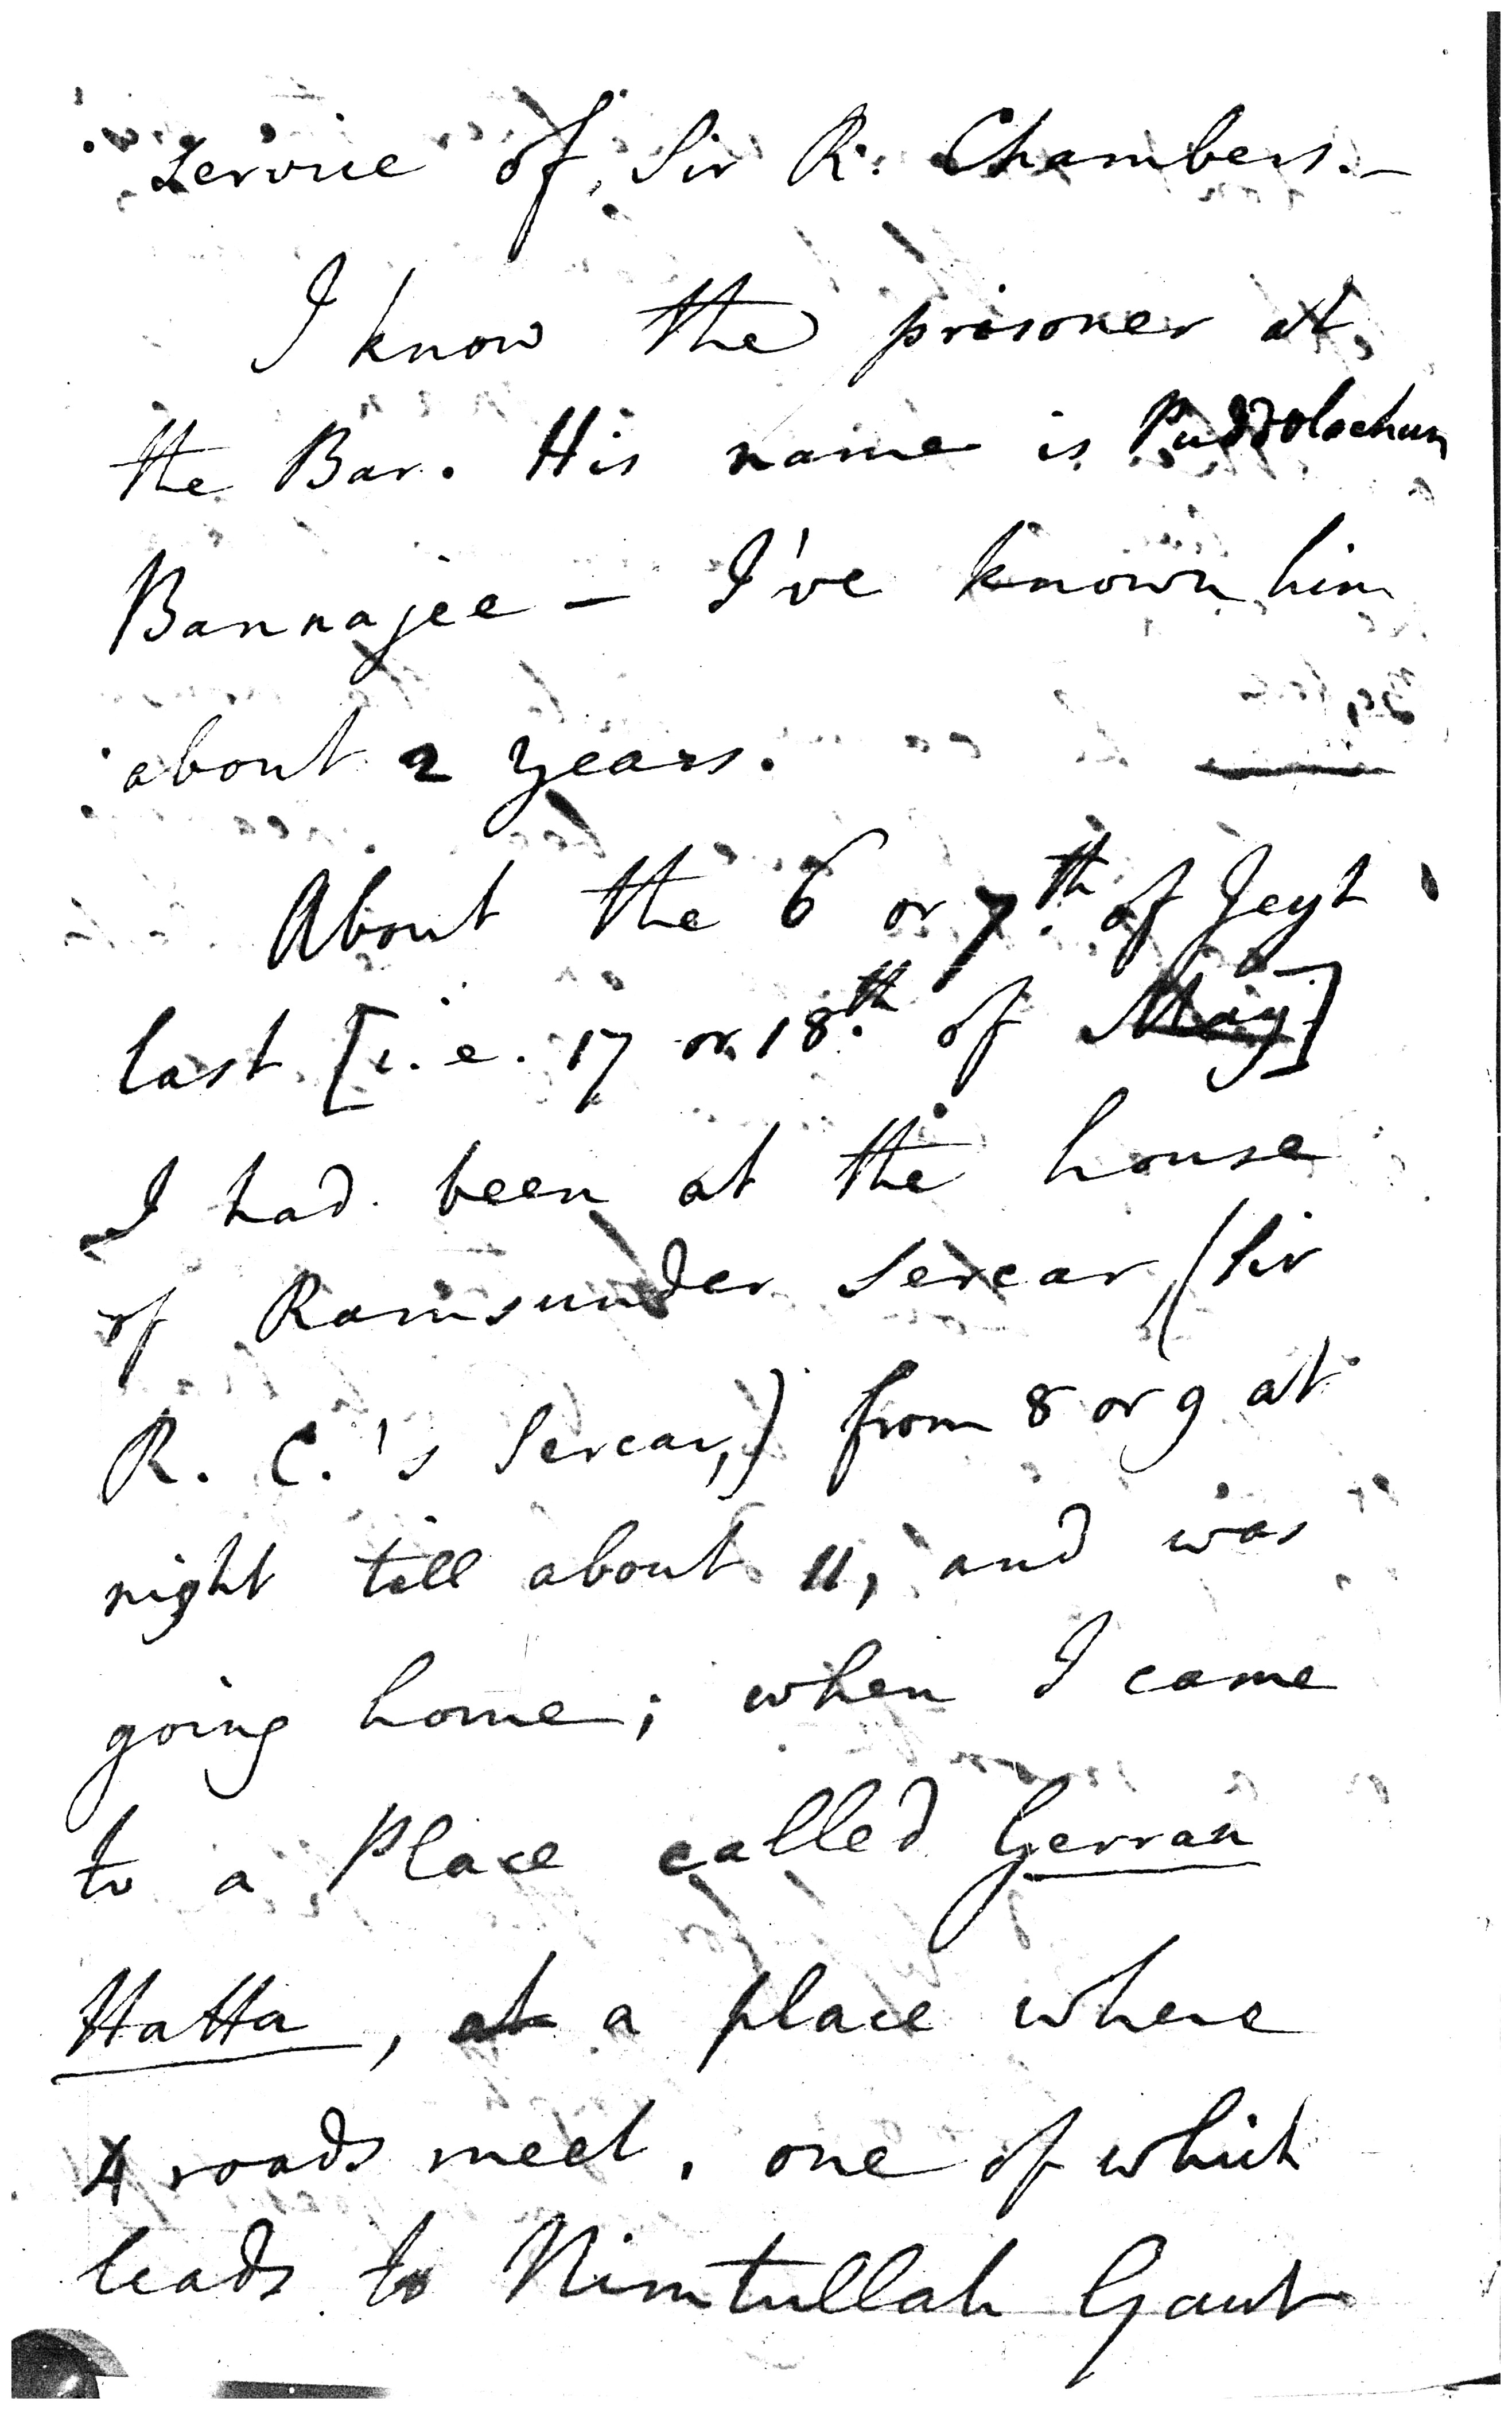 service of Sir R. Chambers.—
I know the prisoner at
the Bar. His name is Puddolochun
Bannajee — I've known him
about 2 years.
About the 6 or 7th of Jeyt
last [i.e. 17 or 18th of May]
I had been at the house
of Ramsunder Sercar (Sir
R. C.'s Sercar,) from 8 or 9 at
night till about 11, and was
going home; when I came
to a Place called Gerran
Hatta, at a place where
4 roads meet, one of which
leads to Nimtullah Gaut